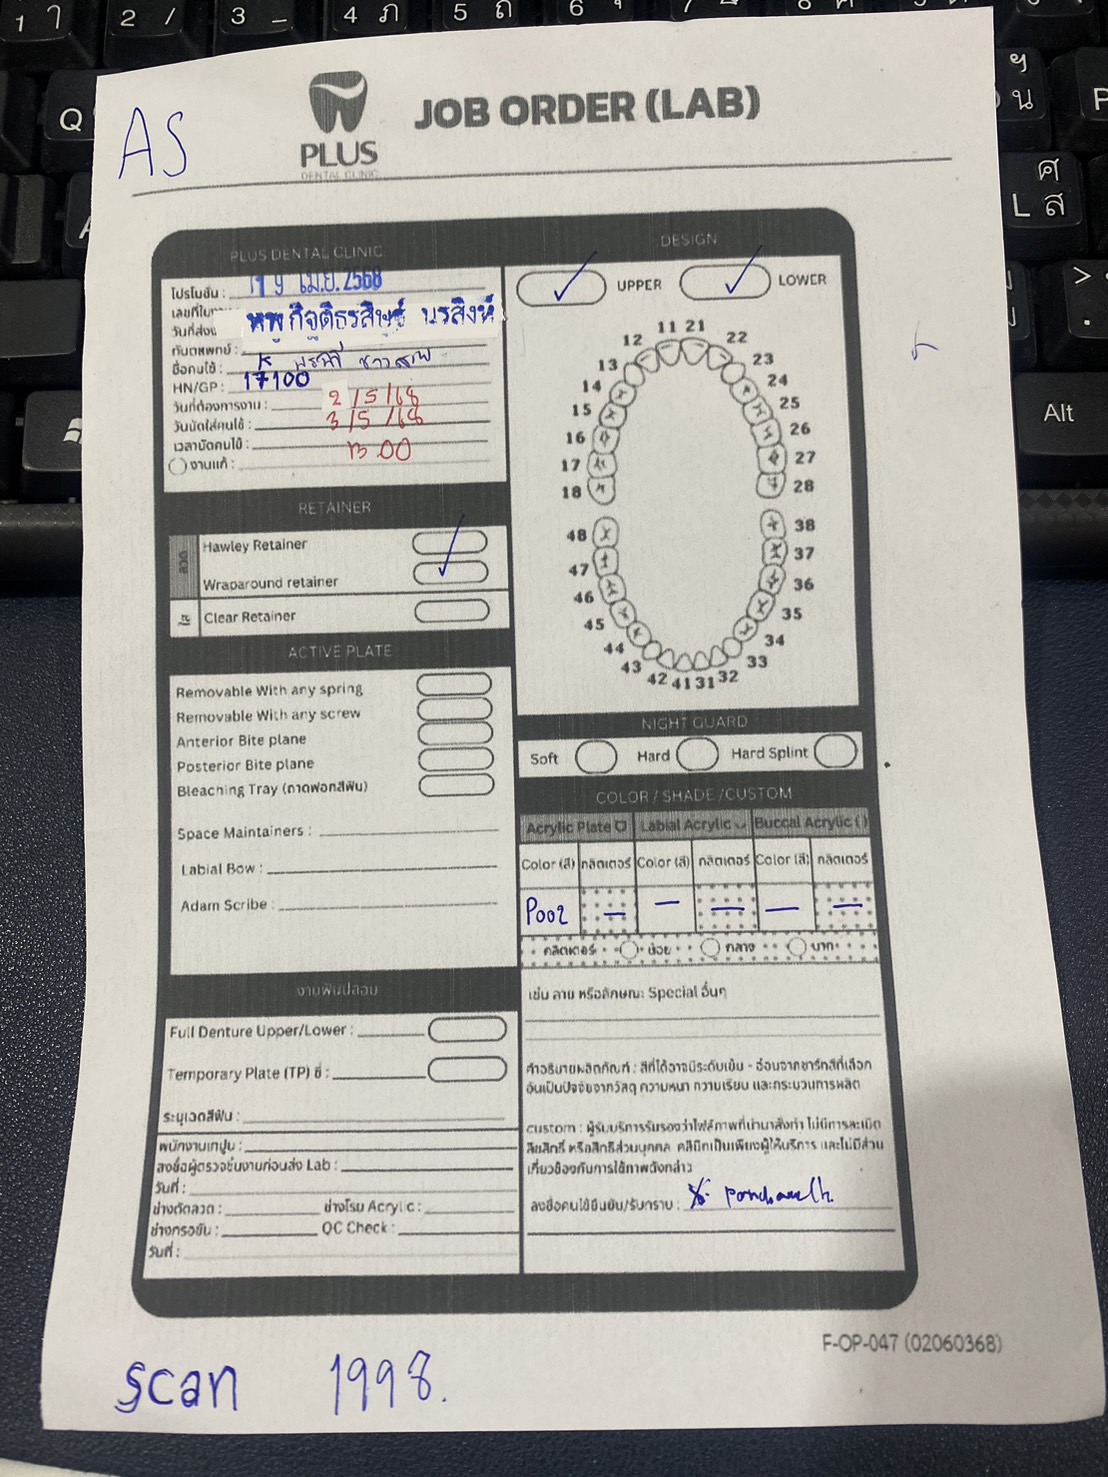 AS
PLUS
DENTAL CLINIC
JOB ORDER (LAB)
PLUS DENTAL CLINIC
โปรโมชั่น : 19 เม.ย. 2568
เลขที่ใบ
วันที่ส่ง
ทันตแพทย์ :
ชื่อคนไข้ : K
HN/GP : 17100
วันที่ต้องการงาน : 2/5/68
วันนัดใส่คนไข้ : 3/5/68
เวลานัดคนไข้ : 13 00
งานแก้ :
RETAINER
ลวด
Hawley Retainer
Wraparound retainer
ใส
Clear Retainer
ACTIVE PLATE
Removable With any spring
Removable With any screw
Anterior Bite plane
Posterior Bite plane
Bleaching Tray (ถาดฟอกสีฟัน)
Space Maintainers :
Labial Bow :
Adam Scribe :
งานฟันปลอม
Full Denture Upper/Lower :
Temporary Plate (TP) ซี่ :
ระบุเฉดสีฟัน :
พนักงานเทปูน :
ลงชื่อผู้ตรวจชิ้นงานก่อนส่ง Lab :
วันที่ :
ช่างดัดลวด : ช่างโรย Acrylic :
ช่างกรอขัด : QC Check :
วันที่ :
DESIGN
UPPER LOWER
11 21
12 22
13 23
14 24
15 25
16 26
17 27
18 28
48 38
47 37
46 36
45 35
44 34
43 33
42 41 31 32
NIGHT GUARD
Soft Hard Hard Splint
COLOR / SHADE /CUSTOM
Acrylic Plate Labial Acrylic Buccal Acrylic ( )
Color (สี) กลิตเตอร์ Color (สี) กลิตเตอร์ Color (สี) กลิตเตอร์
P002 — — — — —
กลิตเตอร์ น้อย กลาง มาก
เช่น ลาย หรือลักษณะ Special อื่นๆ
คำอธิบายผลิตภัณฑ์ : สีที่ได้อาจมีระดับเข้ม - อ่อนจากชาร์ทสีที่เลือก
อันเป็นปัจจัยจากวัสดุ ความหนา ความเรียบ และกระบวนการผลิต
custom : ผู้รับบริการรับรองว่าไฟล์ภาพที่นำมาสั่งทำ ไม่มีการละเมิด
ลิขสิทธิ์ หรือสิทธิส่วนบุคคล คลินิกเป็นเพียงผู้ให้บริการ และไม่มีส่วน
เกี่ยวข้องกับการใช้ภาพดังกล่าว
ลงชื่อคนไข้ยืนยัน/รับทราบ :
F-OP-047 (02060368)
scan 1998.
Q
P
L
ศ
ส
น
Alt